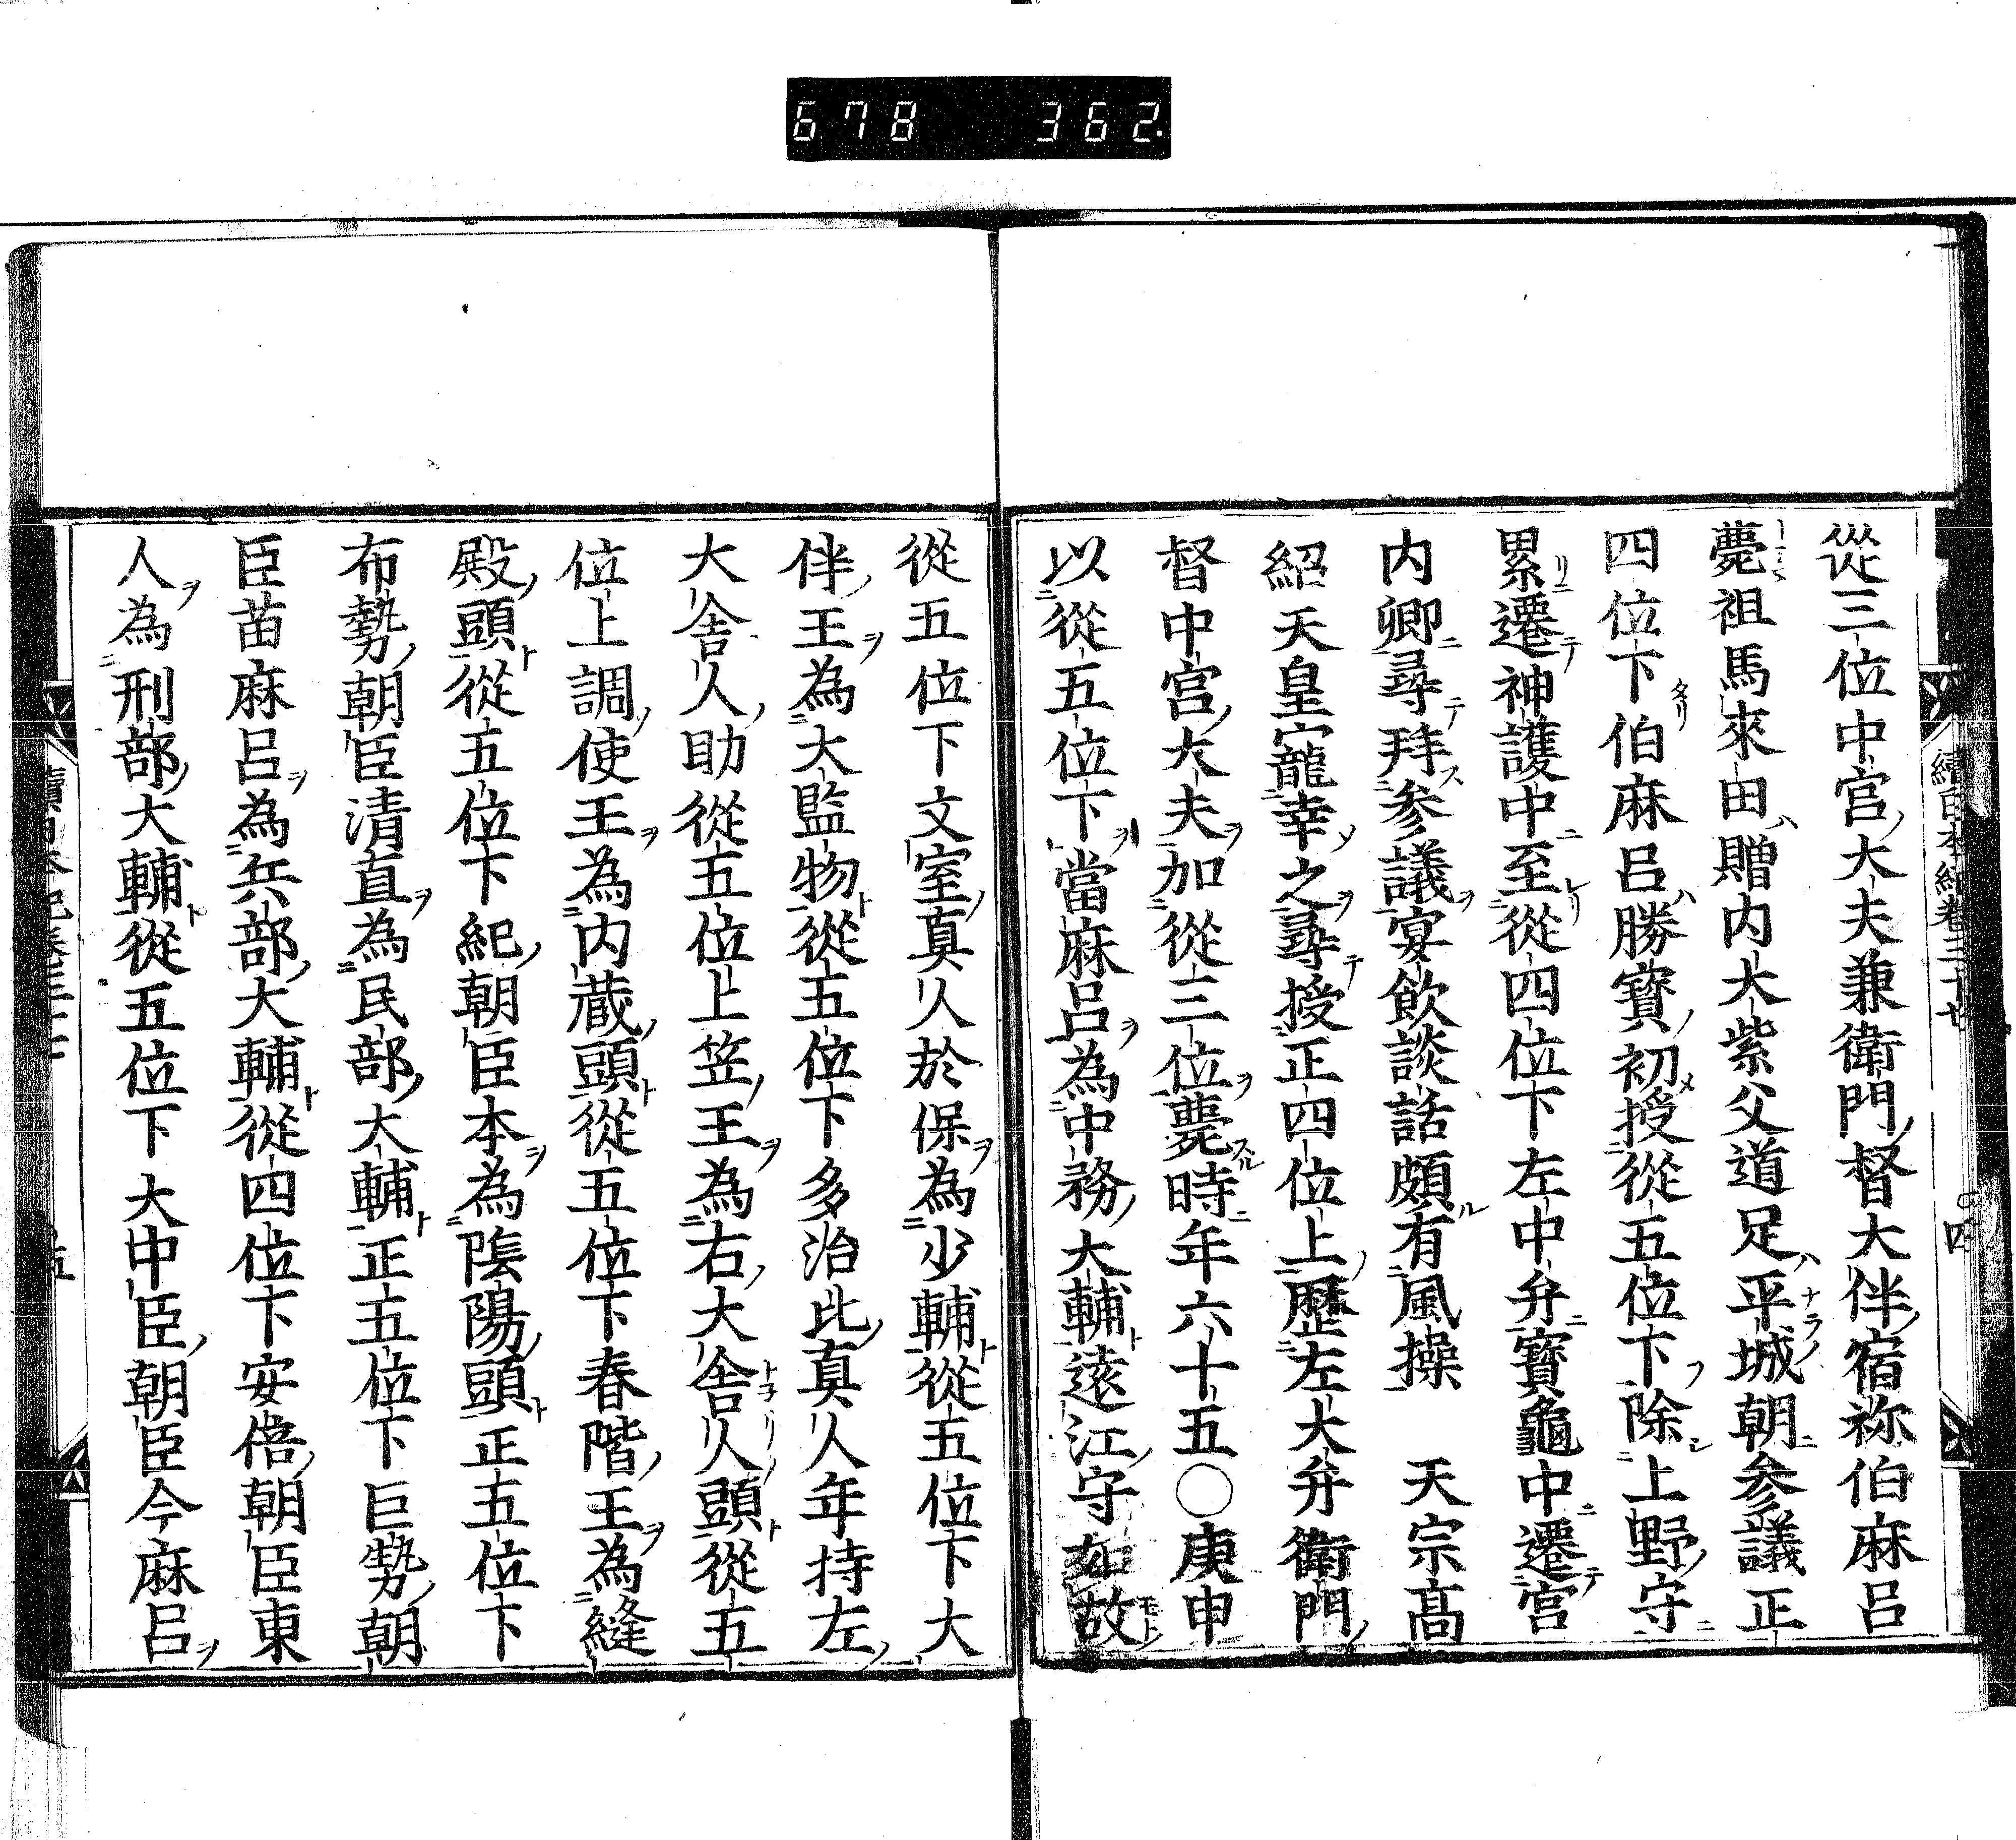 678 362.
續日本紀卷三十七
四
從三位中宮大夫兼衛門督大伴宿祢伯麻呂
薨祖馬來田贈內大紫父道足平城朝參議正
四位下伯麻呂勝寶初授從五位下除上野守
累遷神護中至從四位下左中弁寶龜中遷宮
內卿尋拜參議宴飲談話頗有風操 天宗高
紹天皇寵幸之尋授正四位上歷左大弁衛門
督中宮大夫加從三位薨時年六十五〇庚申
以從五位下當麻呂為中務大輔遠江守如故
從五位下文室真人於保為少輔從五位下大
伴王為大監物從五位下多治比真人年持左
大舍人助從五位上笠王為右大舍人頭從五
位上調使王為內蔵頭從五位下春階王為縫
殿頭從五位下紀朝臣本為陰陽頭正五位下
布勢朝臣清直為民部大輔正五位下巨勢朝
臣苗麻呂為兵部大輔從四位下安倍朝臣東
人為刑部大輔從五位下大中臣朝臣今麻呂